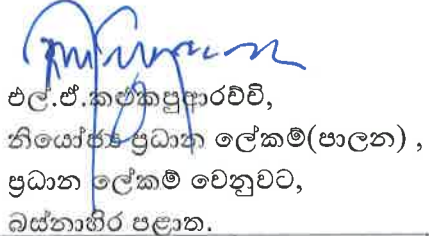 එල්.ඒ.කළුකපුආරච්චි,
නියෝජ්‍ය ප්‍රධාන ලේකම්(පාලන) ,
ප්‍රධාන ලේකම් වෙනුවට,
බස්නාහිර පළාත.